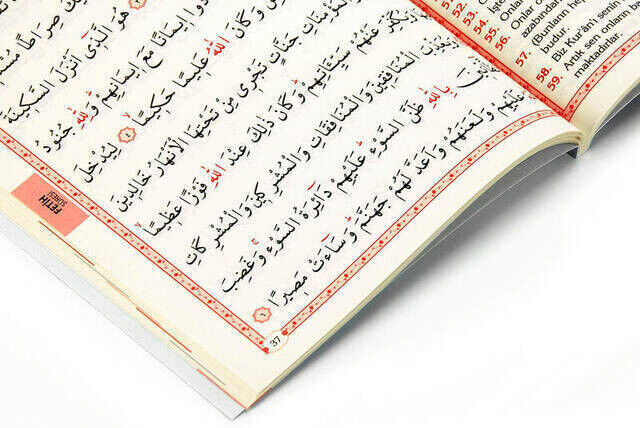 صِرَاطًا
هُوَ الَّذِي أَنْزَلَ السَّكِينَةَ
إِيمَانًا مَعَ إِيمَانِهِمْ وَلِلّٰهِ جُنُودُ
وَكَانَ اللّٰهُ عَلِيمًا حَكِيمًا ٤ لِيُدْخِلَ
جَنَّاتٍ تَجْرِي مِنْ تَحْتِهَا الْاَنْهَارُ خَالِدِينَ
وَيُكَفِّرَ عَنْهُمْ سَيِّئَاتِهِمْ وَكَانَ ذٰلِكَ عِنْدَ اللّٰهِ فَوْزًا عَظِيمًا
الْمُنَافِقِينَ وَالْمُنَافِقَاتِ وَالْمُشْرِكِينَ وَالْمُشْرِكَاتِ
بِاللّٰهِ ظَنَّ السَّوْءِ عَلَيْهِمْ دَائِرَةُ السَّوْءِ وَغَضِبَ
عَلَيْهِمْ وَلَعَنَهُمْ وَاَعَدَّ لَهُمْ جَهَنَّمَ وَسَاءَتْ مَصِيرًا ٦
FETİH
SÛRESİ
37
53.
54.
55.
56. Onlar
azabından
57. (Bunların
budur.
58. Biz Kur'ân'ı senin
59. Artık sen onların
maktadırlar.